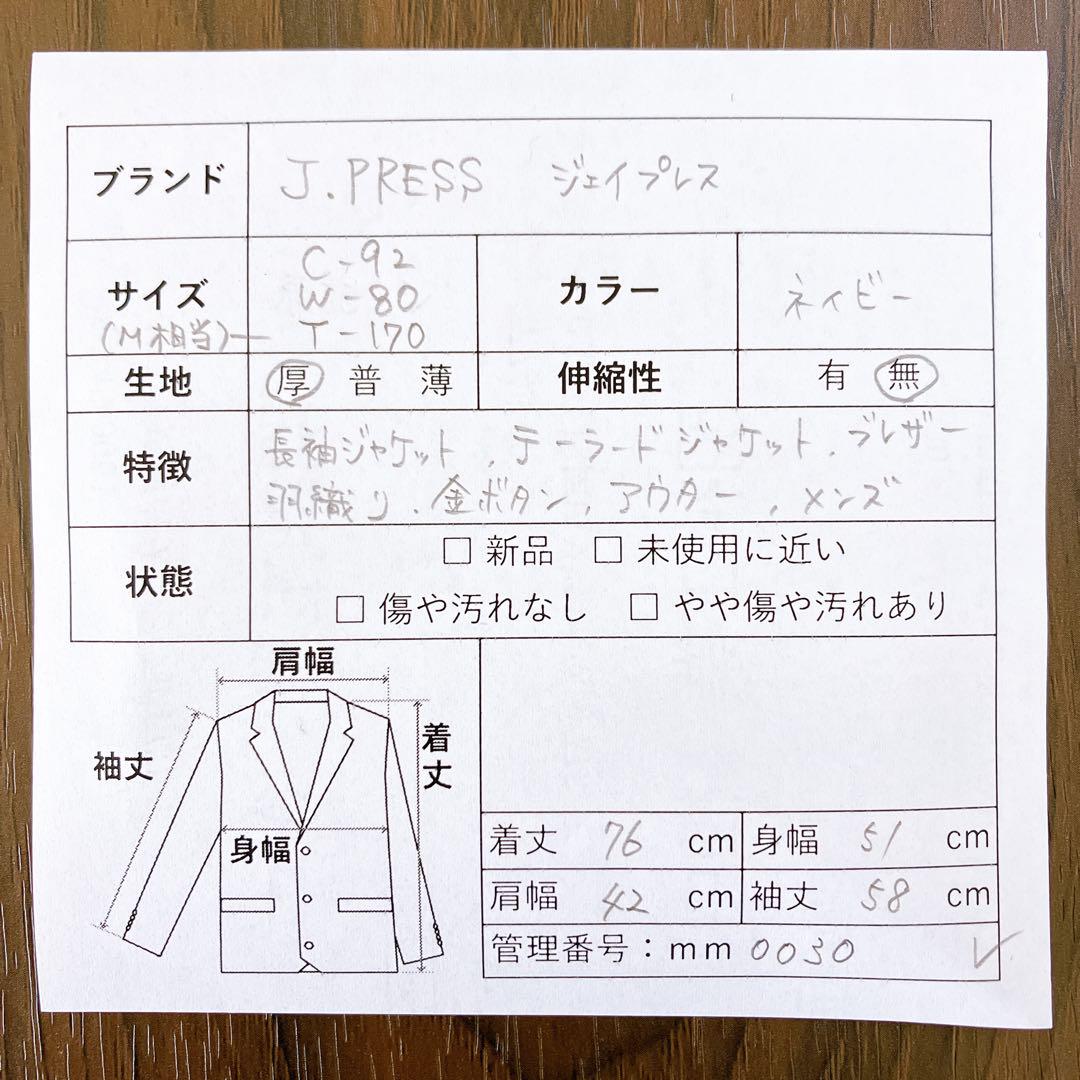 ブランド J.PRESS ジェイプレス
C-92
サイズ W-80 カラー ネイビー
(M相当)― T-170
生地 厚 普 薄 伸縮性 有 無
特徴 長袖ジャケット、テーラードジャケット、ブレザー
羽織り、金ボタン、アウター、メンズ
状態 □ 新品 □ 未使用に近い
□ 傷や汚れなし □ やや傷や汚れあり
肩幅
袖丈
着丈
身幅
着丈 76 cm 身幅 51 cm
肩幅 42 cm 袖丈 58 cm
管理番号：mm 0030 ✓